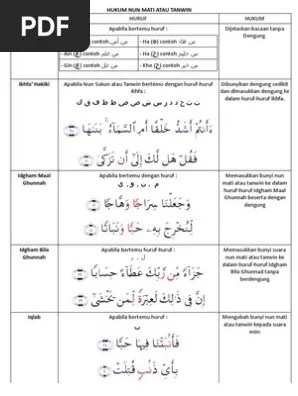 HUKUM NUN MATI ATAU TANWIN
PDF
HURUF
HUKUM
Apabila bertemu huruf :
Dijelaskan bacaan tanpa
Dengung
- Ha (ه) contoh
- Ha (ح) contoh من حكيم
-Gin (غ) contoh من غل
- Kho (خ) contoh من خير
Ikhfa' Hakiki
Apabila Nun Sakun atau Tanwin bertemu dengan huruf-huruf
ikhfa :
ت ث ج د ذ ز س ش ص ض ط ظ ف ق ك
ءَأَنتُمْ أَشَدُّ خَلْقًا أَمِ ٱلسَّمَآءُ ۚ بَنَىٰهَا
فَقُلْ هَل لَّكَ إِلَىٰٓ أَن تَزَكَّىٰ
Dibunyikan dengung sedikit
dan dimasukkan dengung ke
dalam huruf-huruf Ikhfa.
Idgham Maal
Ghunnah
Apabila bertemu dengan huruf :
م , ن , و , ي
وَجَعَلْنَا سِرَاجًا وَهَّاجًا
لِّنُخْرِجَ بِهِۦ حَبًّا وَنَبَاتًا
Memasukkan bunyi nun
mati atau tanwin ke dalam
huruf-huruf Idgham Maal
Ghunnah beserta dengan
dengung
Idgham Bila
Ghunnah
Apabila bertemu huruf-huruf :
ل , ر
جَزَآءً مِّن رَّبِّكَ عَطَآءً حِسَابًا
إِنَّ فِى ذَٰلِكَ لَعِبْرَةً لِّمَن يَخْشَىٰٓ
Memasukkan bunyi suara
nun mati atau tanwin ke
dalam huruf-huruf Idgham
Bila Ghunnah tanpa
berdengung
Iqlab
Apabila bertemu huruf :
ب
فَأَنۢبَتْنَا فِيهَا حَبًّا
بِأَىِّ ذَنۢبٍ قُتِلَتْ
Mengubah bunyi nun mati
atau tanwin kepada suara
mim